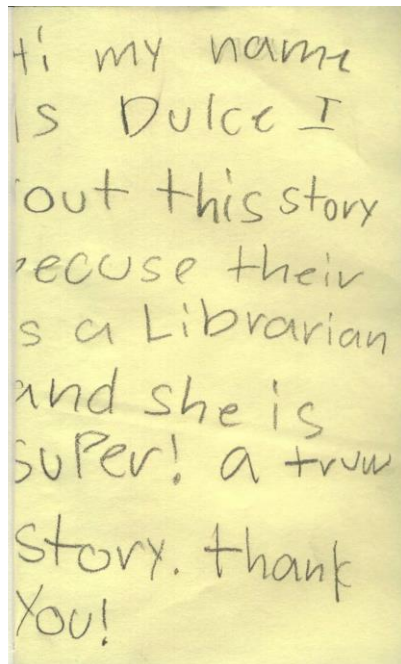 Hi my name
is Dulce I
out this story
becuse their
is a Librarian
and she is
super! a truw
story. thank
You!